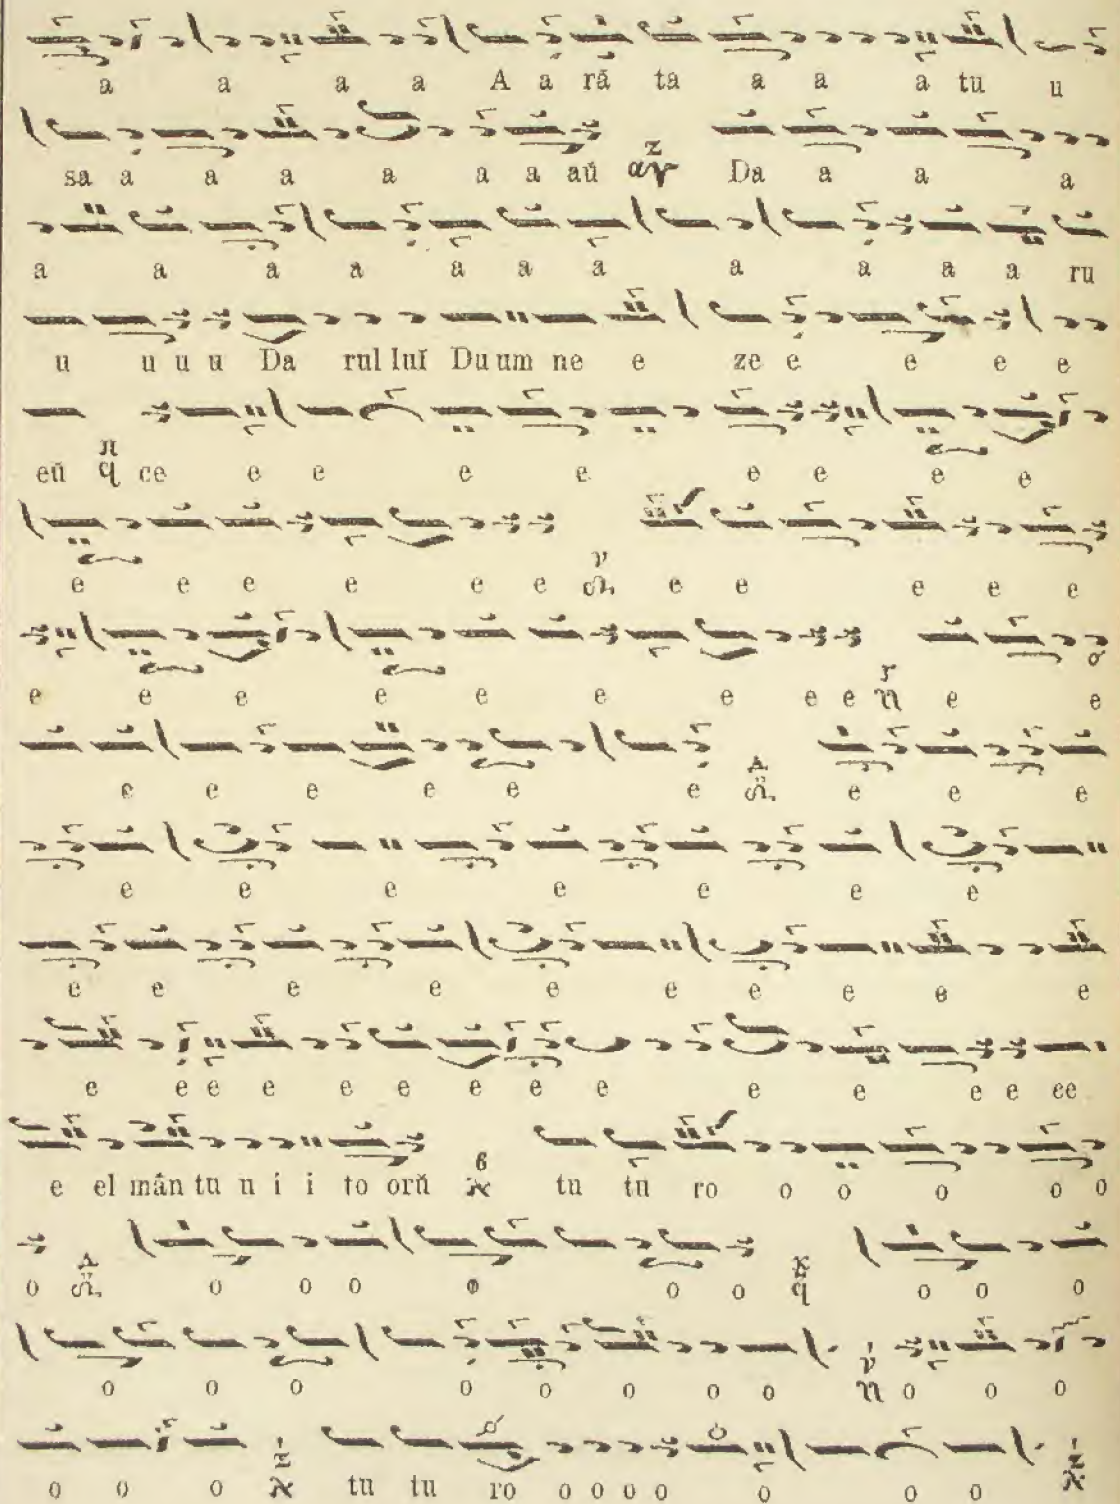 a a a a A a ră ta a a a tu u
sa a a a a a a aŭ Da a a a
a a a a a a a a a a a ru
u u u u Da rul luĭ Du um ne e ze e e e e
eŭ ce e e e e e e e e
e e e e e e e e e e e
e e e e e e e e e e e
e e e e e e e e e
e e e e e e e
e e e e e e e e e e
e e e e e e e e e e e e e ee
e el mân tu u i i to orŭ tu tu ro o o o o o
o o o o o o o o o o
o o o o o o o o o o o
o o o tu tu ro o o o o o o o